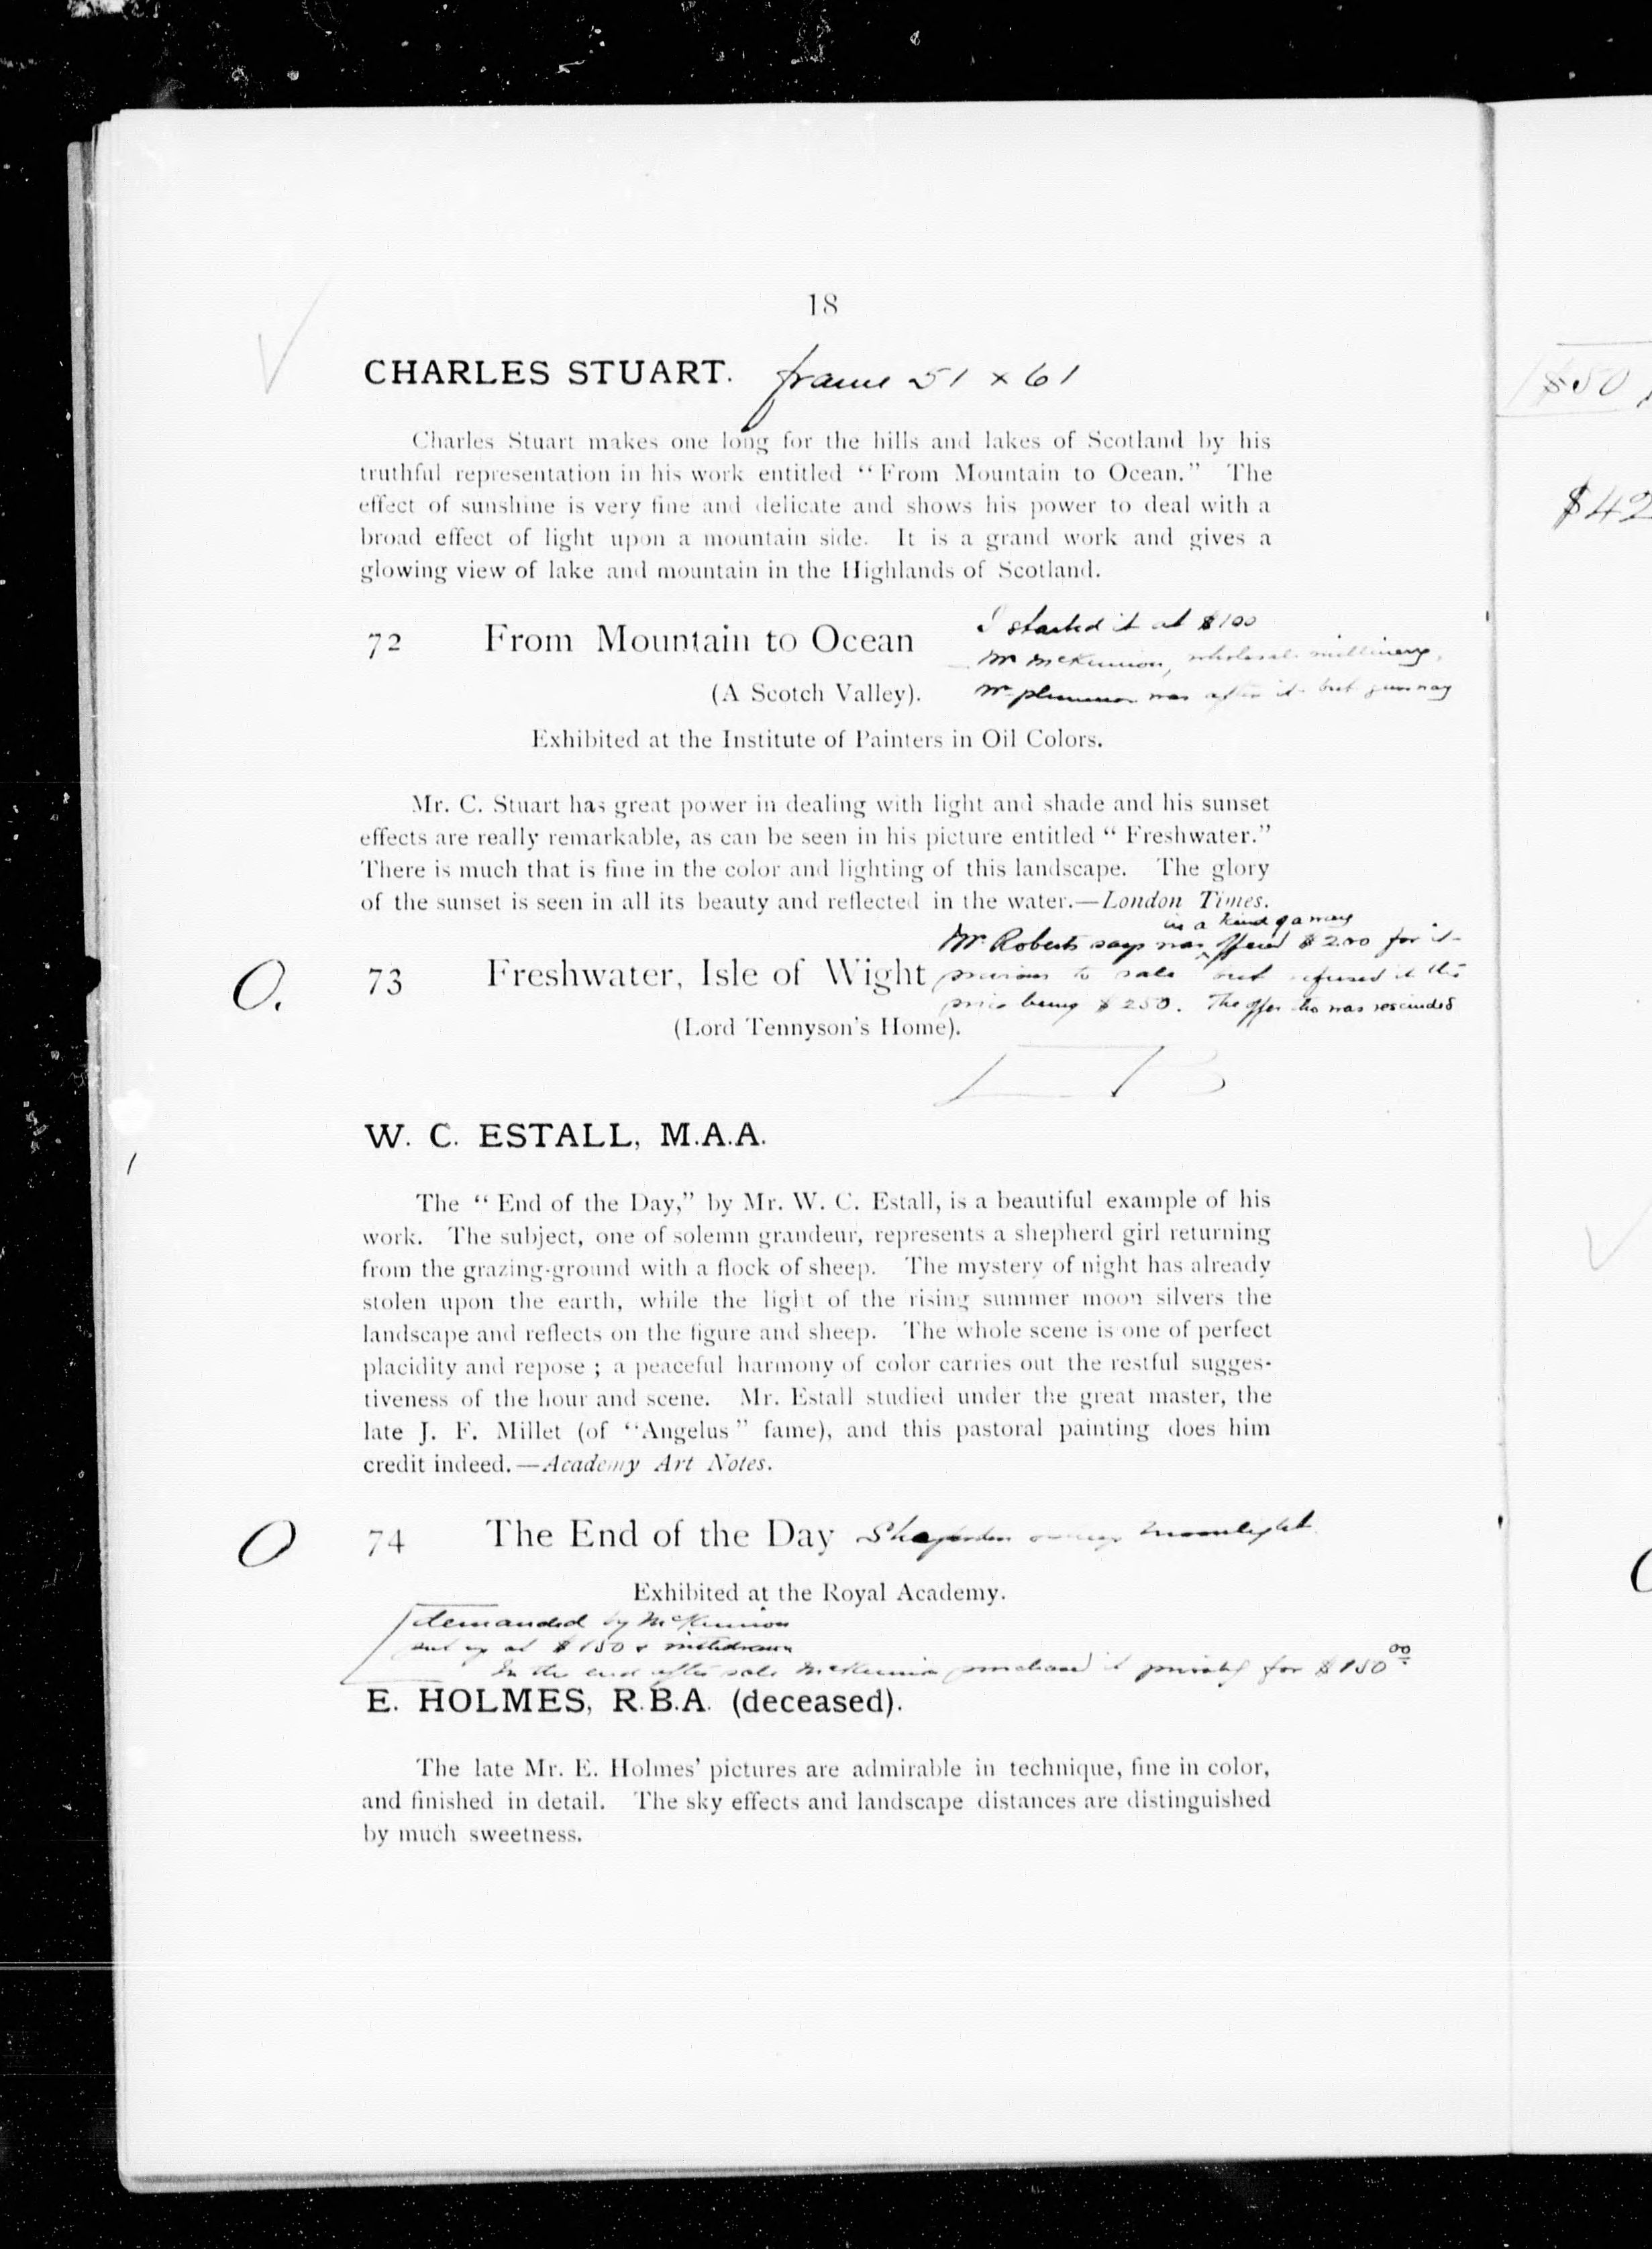 18
CHARLES STUART. frame 51 x 61
Charles Stuart makes one long for the hills and lakes of Scotland by his
truthful representation in his work entitled “From Mountain to Ocean.” The
effect of sunshine is very fine and delicate and shows his power to deal with a
broad effect of light upon a mountain side. It is a grand work and gives a
glowing view of lake and mountain in the Highlands of Scotland.
I started it at $100
72 From Mountain to Ocean
Mr McKinnon, wholesale millinery,
(A Scotch Valley).
was after it but
Exhibited at the Institute of Painters in Oil Colors.
Mr. C. Stuart has great power in dealing with light and shade and his sunset
effects are really remarkable, as can be seen in his picture entitled “Freshwater.”
There is much that is fine in the color and lighting of this landscape. The glory
of the sunset is seen in all its beauty and reflected in the water.—London Times.
in a kind of a way
Mr Roberts says was offered $200 for it
O. 73 Freshwater, Isle of Wight previous to sale but refused it the
price being $250. The offer was rescinded
(Lord Tennyson's Home).
W. C. ESTALL, M.A.A.
The “End of the Day,” by Mr. W. C. Estall, is a beautiful example of his
work. The subject, one of solemn grandeur, represents a shepherd girl returning
from the grazing-ground with a flock of sheep. The mystery of night has already
stolen upon the earth, while the light of the rising summer moon silvers the
landscape and reflects on the figure and sheep. The whole scene is one of perfect
placidity and repose ; a peaceful harmony of color carries out the restful sugges-
tiveness of the hour and scene. Mr. Estall studied under the great master, the
late J. F. Millet (of “Angelus” fame), and this pastoral painting does him
credit indeed.—Academy Art Notes.
O 74 The End of the Day moonlight
Exhibited at the Royal Academy.
demanded by McKinnon
put up at $150 & withdrawn
In the end after sale McKinnon purchased it privately for $150 00
E. HOLMES, R.B.A. (deceased).
The late Mr. E. Holmes' pictures are admirable in technique, fine in color,
and finished in detail. The sky effects and landscape distances are distinguished
by much sweetness.
$50
$42